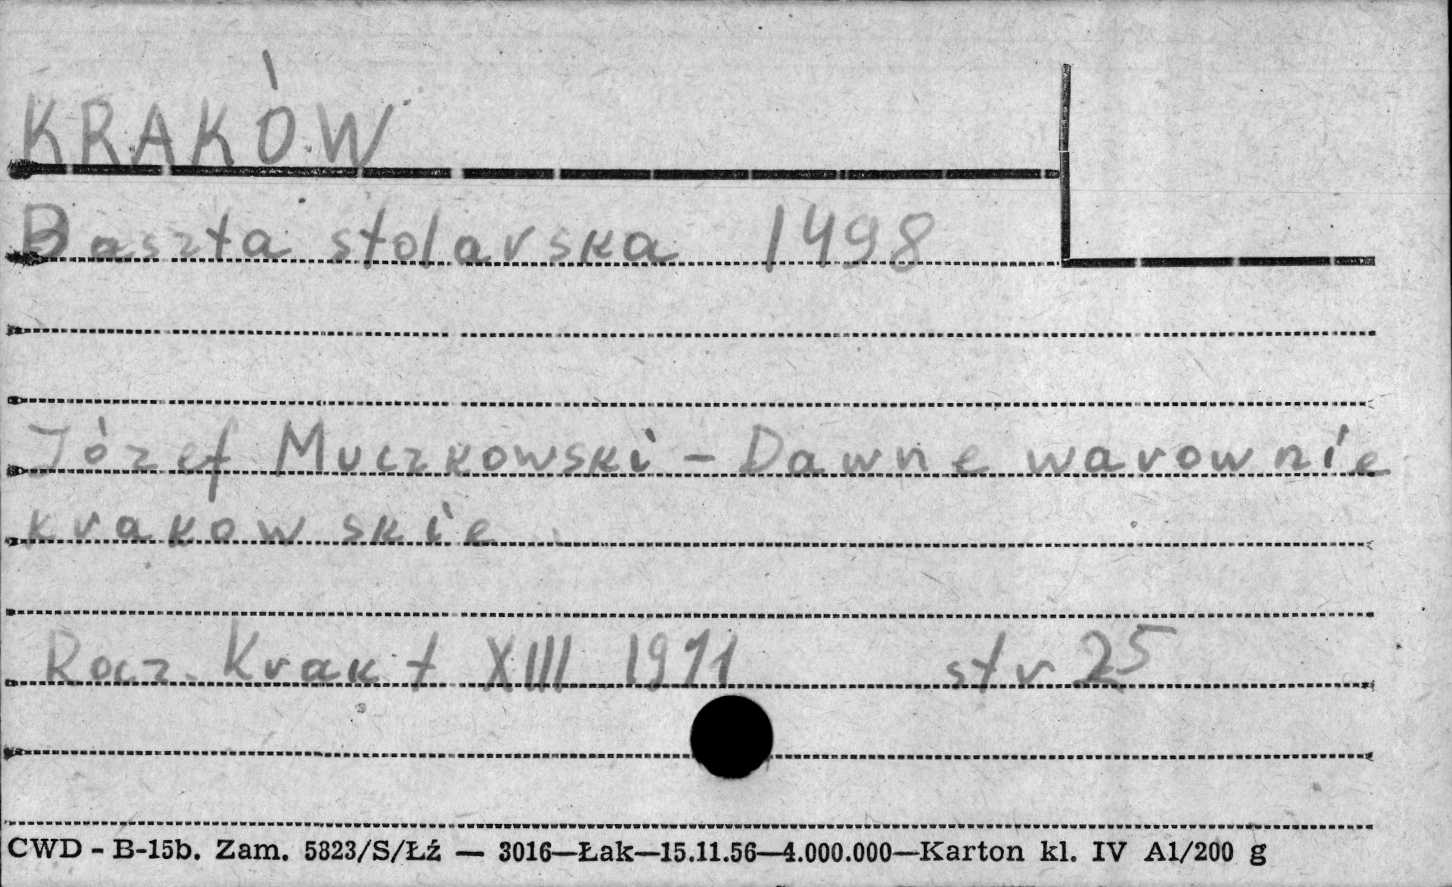 KRAKÓW
Baszta stolarska 1498
Józef Muczkowski - Dawne warownie
krakowskie
Rocz. Krak t XIII 1911 str 25
CWD - B-15b. Zam. 5823/S/Łź — 3016—Łak—15.11.56—4.000.000—Karton kl. IV A1/200 g